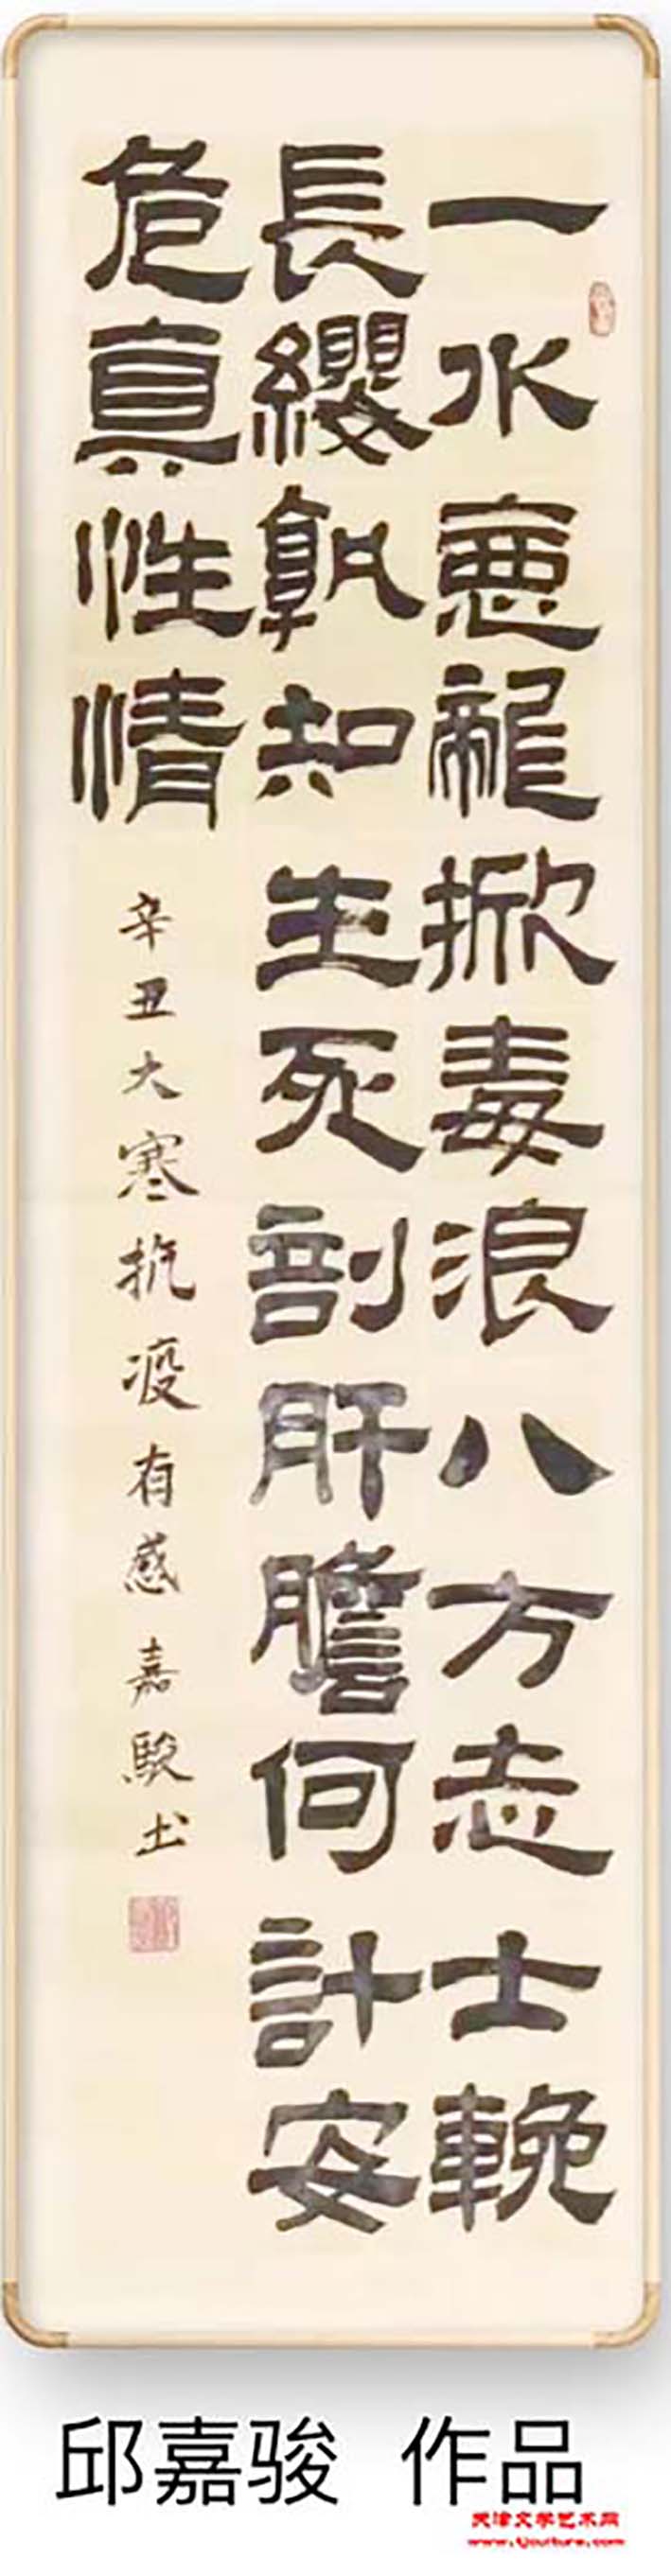 一水惡龍掀毒浪八方志士輓
長纓孰知生死剖肝膽何計安
危真性情
辛丑大寒抗疫有感嘉駿书
邱嘉骏 作品
天津文学艺术网
www.tjculture.com